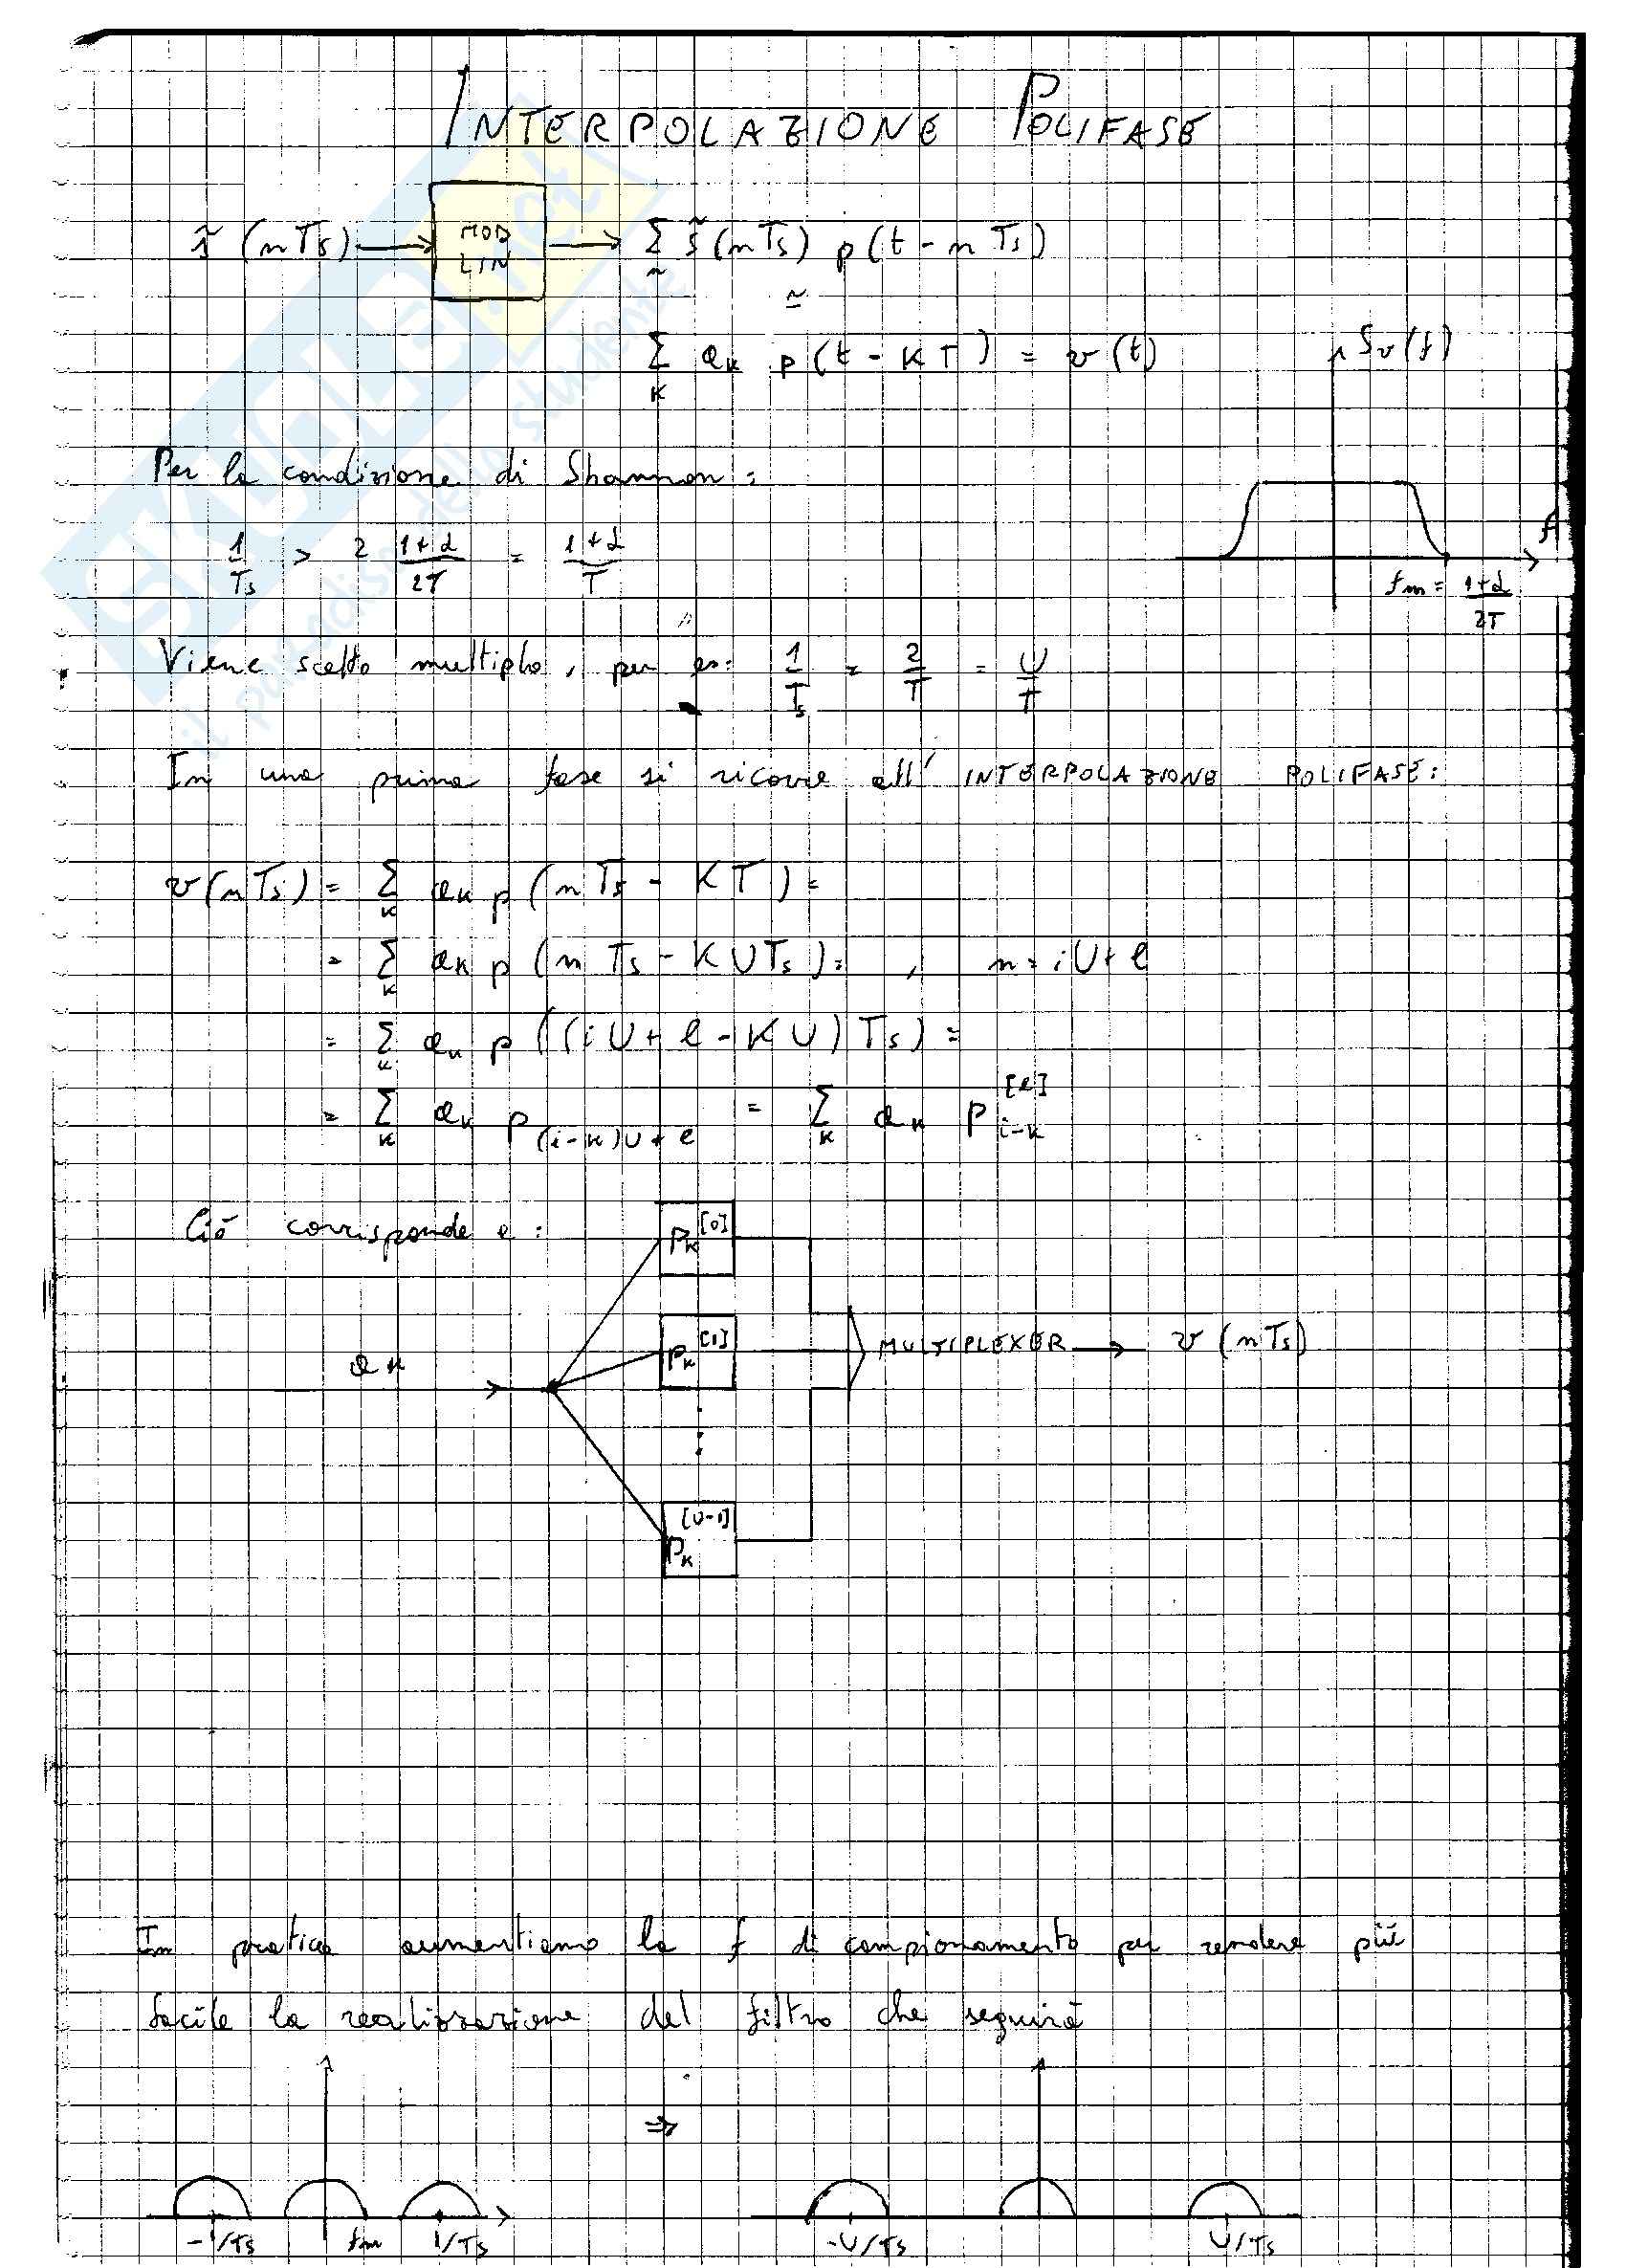 INTERPOLAZIONE POLIFASE
s̃(nTs) → MOD LIN → Σ_n s̃(nTs) p(t - nTs)
≃
Σ_K a_K p(t - KT) = v(t)
S_v(f)
Per la condizione di Shannon:
1/Ts > 2 (1+α)/2T = (1+α)/T
f
fm = (1+α)/2T
Viene scelto multiplo, per es: 1/Ts = 2/T = U/T
In una prima fase si ricorre all' INTERPOLAZIONE POLIFASE:
v(nTs) = Σ_K a_K p(nTs - KT) =
= Σ_K a_K p(nTs - KUTs) = , n = iU + l
= Σ_K a_K p((iU + l - KU)Ts) =
= Σ_K a_K p_(i-K)U+l = Σ_K a_K p_i-K^[l]
Ciò corrisponde a:
p_K^[0]
p_K^[1]
a_K
MULTIPLEXER → v(nTs)
p_K^[U-1]
In pratica aumentiamo la f di campionamento per rendere più
facile la realizzazione del filtro che seguirà
⇒
-1/Ts fm 1/Ts -U/Ts U/Ts
SKUOLA.net
il paradiso dello studente